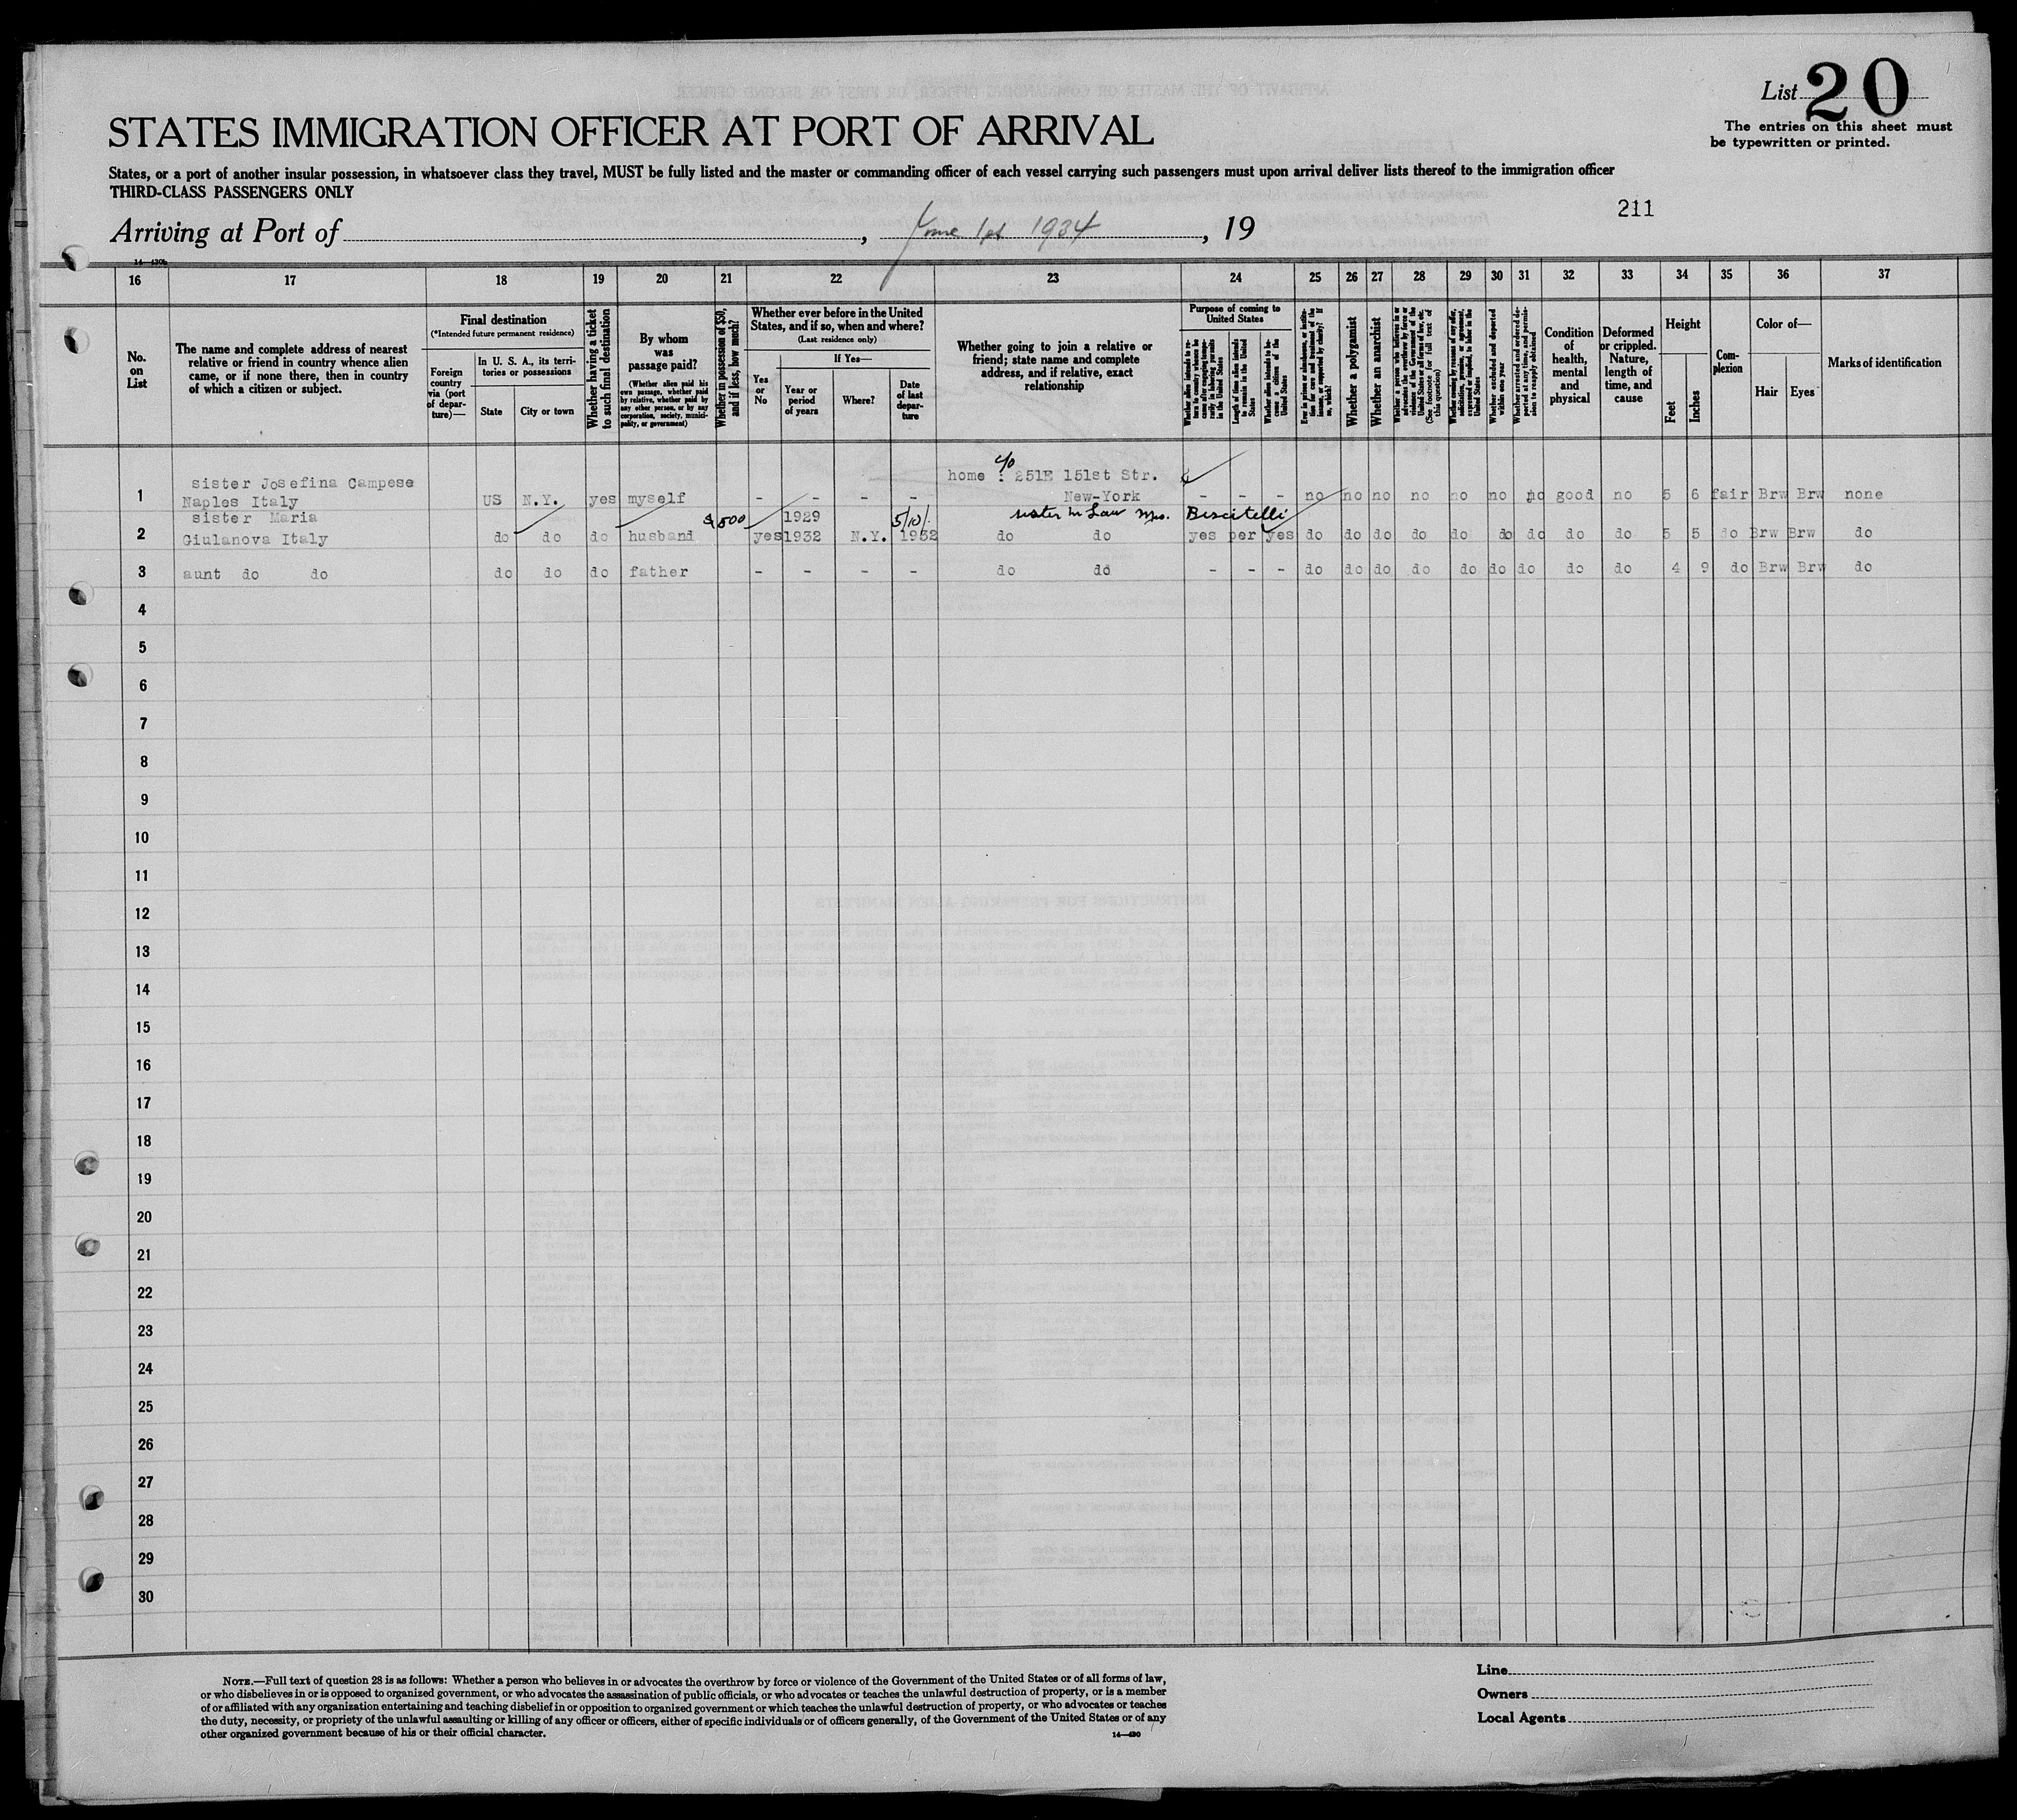 List 20
The entries on this sheet must
be typewritten or printed.
STATES IMMIGRATION OFFICER AT PORT OF ARRIVAL
States, or a port of another insular possession, in whatsoever class they travel, MUST be fully listed and the master or commanding officer of each vessel carrying such passengers must upon arrival deliver lists thereof to the immigration officer
THIRD-CLASS PASSENGERS ONLY
211
Arriving at Port of , June 1st 1934 , 19
16 17 18 19 20 21 22 23 24 25 26 27 28 29 30 31 32 33 34 35 36 37
No. on List
The name and complete address of nearest
relative or friend in country whence alien
came, or if none there, then in country
of which a citizen or subject.
Final destination
(*Intended future permanent residence)
Foreign country via (port of departure)—
In U. S. A., its territories or possessions
State
City or town
Whether having a ticket to such final destination
By whom was passage paid?
(Whether alien paid his own passage, whether paid by relative, whether paid by any other person, or by any corporation, society, municipality, or government)
Whether in possession of $50, and if less, how much?
Whether ever before in the United
States, and if so, when and where?
(Last residence only)
Yes or No
If Yes—
Year or period of years
Where?
Date of last departure
Whether going to join a relative or
friend; state name and complete
address, and if relative, exact
relationship
Purpose of coming to United States
Length of time alien intends to remain in the United States
Whether alien intends to become a citizen of the United States
Whether a polygamist
Whether an anarchist
Whether excluded and deported within one year
Condition of health, mental and physical
Deformed or crippled. Nature, length of time, and cause
Height
Feet
Inches
Complexion
Color of—
Hair
Eyes
Marks of identification
home : c/o 251E 151st Str.
sister Josefina Campese
1 Naples Italy US N.Y. yes myself - - - - New-York - - - no no no no no no no good no 5 6 fair Brw Brw none
sister Maria $500 1929 5/10/. sister in Law Mrs. Biscitelli
2 Giulanova Italy do do do husband yes 1932 N.Y. 1932 do do yes per yes do do do do do do do do do 5 5 do Brw Brw do
3 aunt do do do do do father - - - - do do - - - do do do do do do do do do 4 9 do Brw Brw do
4
5
6
7
8
9
10
11
12
13
14
15
16
17
18
19
20
21
22
23
24
25
26
27
28
29
30
NOTE.—Full text of question 28 is as follows: Whether a person who believes in or advocates the overthrow by force or violence of the Government of the United States or of all forms of law,
or who disbelieves in or is opposed to organized government, or who advocates the assassination of public officials, or who advocates or teaches the unlawful destruction of property, or is a member
of or affiliated with any organization entertaining and teaching disbelief in or opposition to organized government or which teaches the unlawful destruction of property, or who advocates or teaches
the duty, necessity, or propriety of the unlawful assaulting or killing of any officer or officers, either of specific individuals or of officers generally, of the Government of the United States or of any
other organized government because of his or their official character.
14—430
Line
Owners
Local Agents